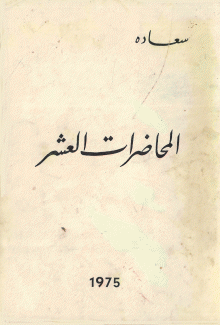 سعاده
المحاضرات العشر
1975